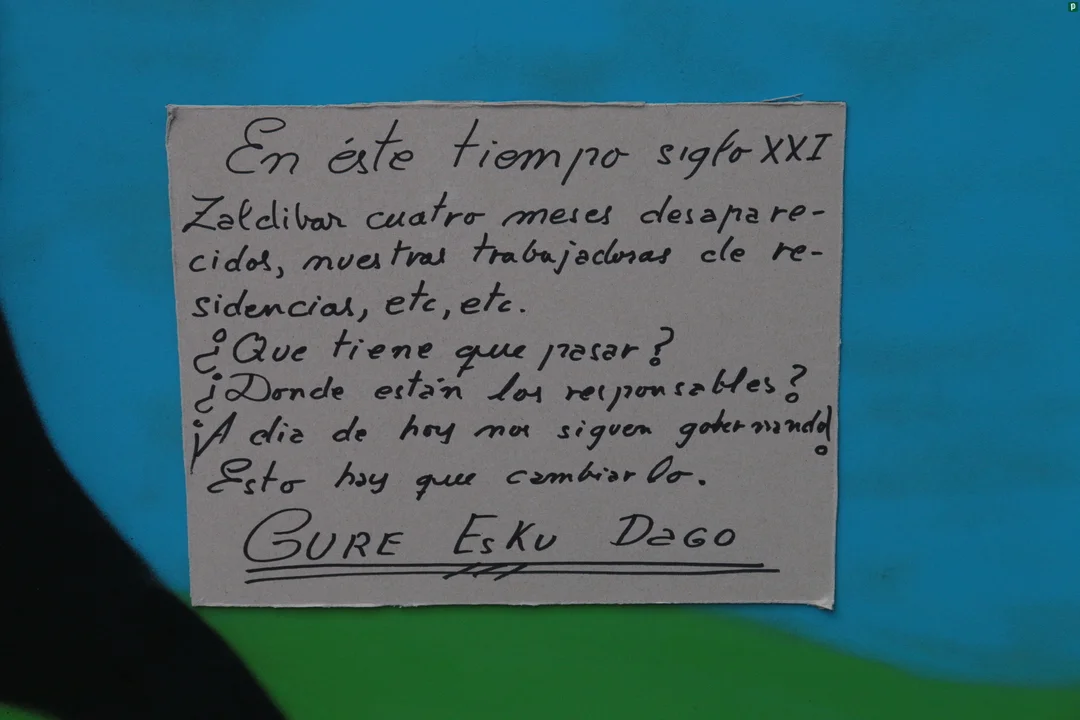 En éste tiempo siglo XXI
Zaldibar cuatro meses desapare-
cidos, nuestras trabajadoras de re-
sidencias, etc, etc.
¿Que tiene que pasar?
¿Donde están los responsables?
¡A dia de hoy nos siguen gobernando!
Esto hay que cambiarlo.
GURE ESKU DAGO